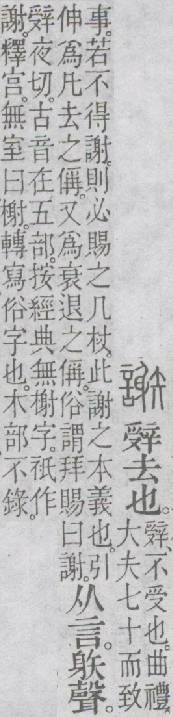 謝
辤去也。
辤、不受也。曲禮。
大夫七十而致
事。若不得謝。則必賜之几杖。此謝之本義也。引
伸爲凡去之偁。又爲衰退之偁。俗謂拜賜曰謝。
从言。䠶聲。
辤夜切。古音在五部。按經典無榭字。衹作
謝。釋宫。無室曰榭。轉寫俗字也。木部不錄。